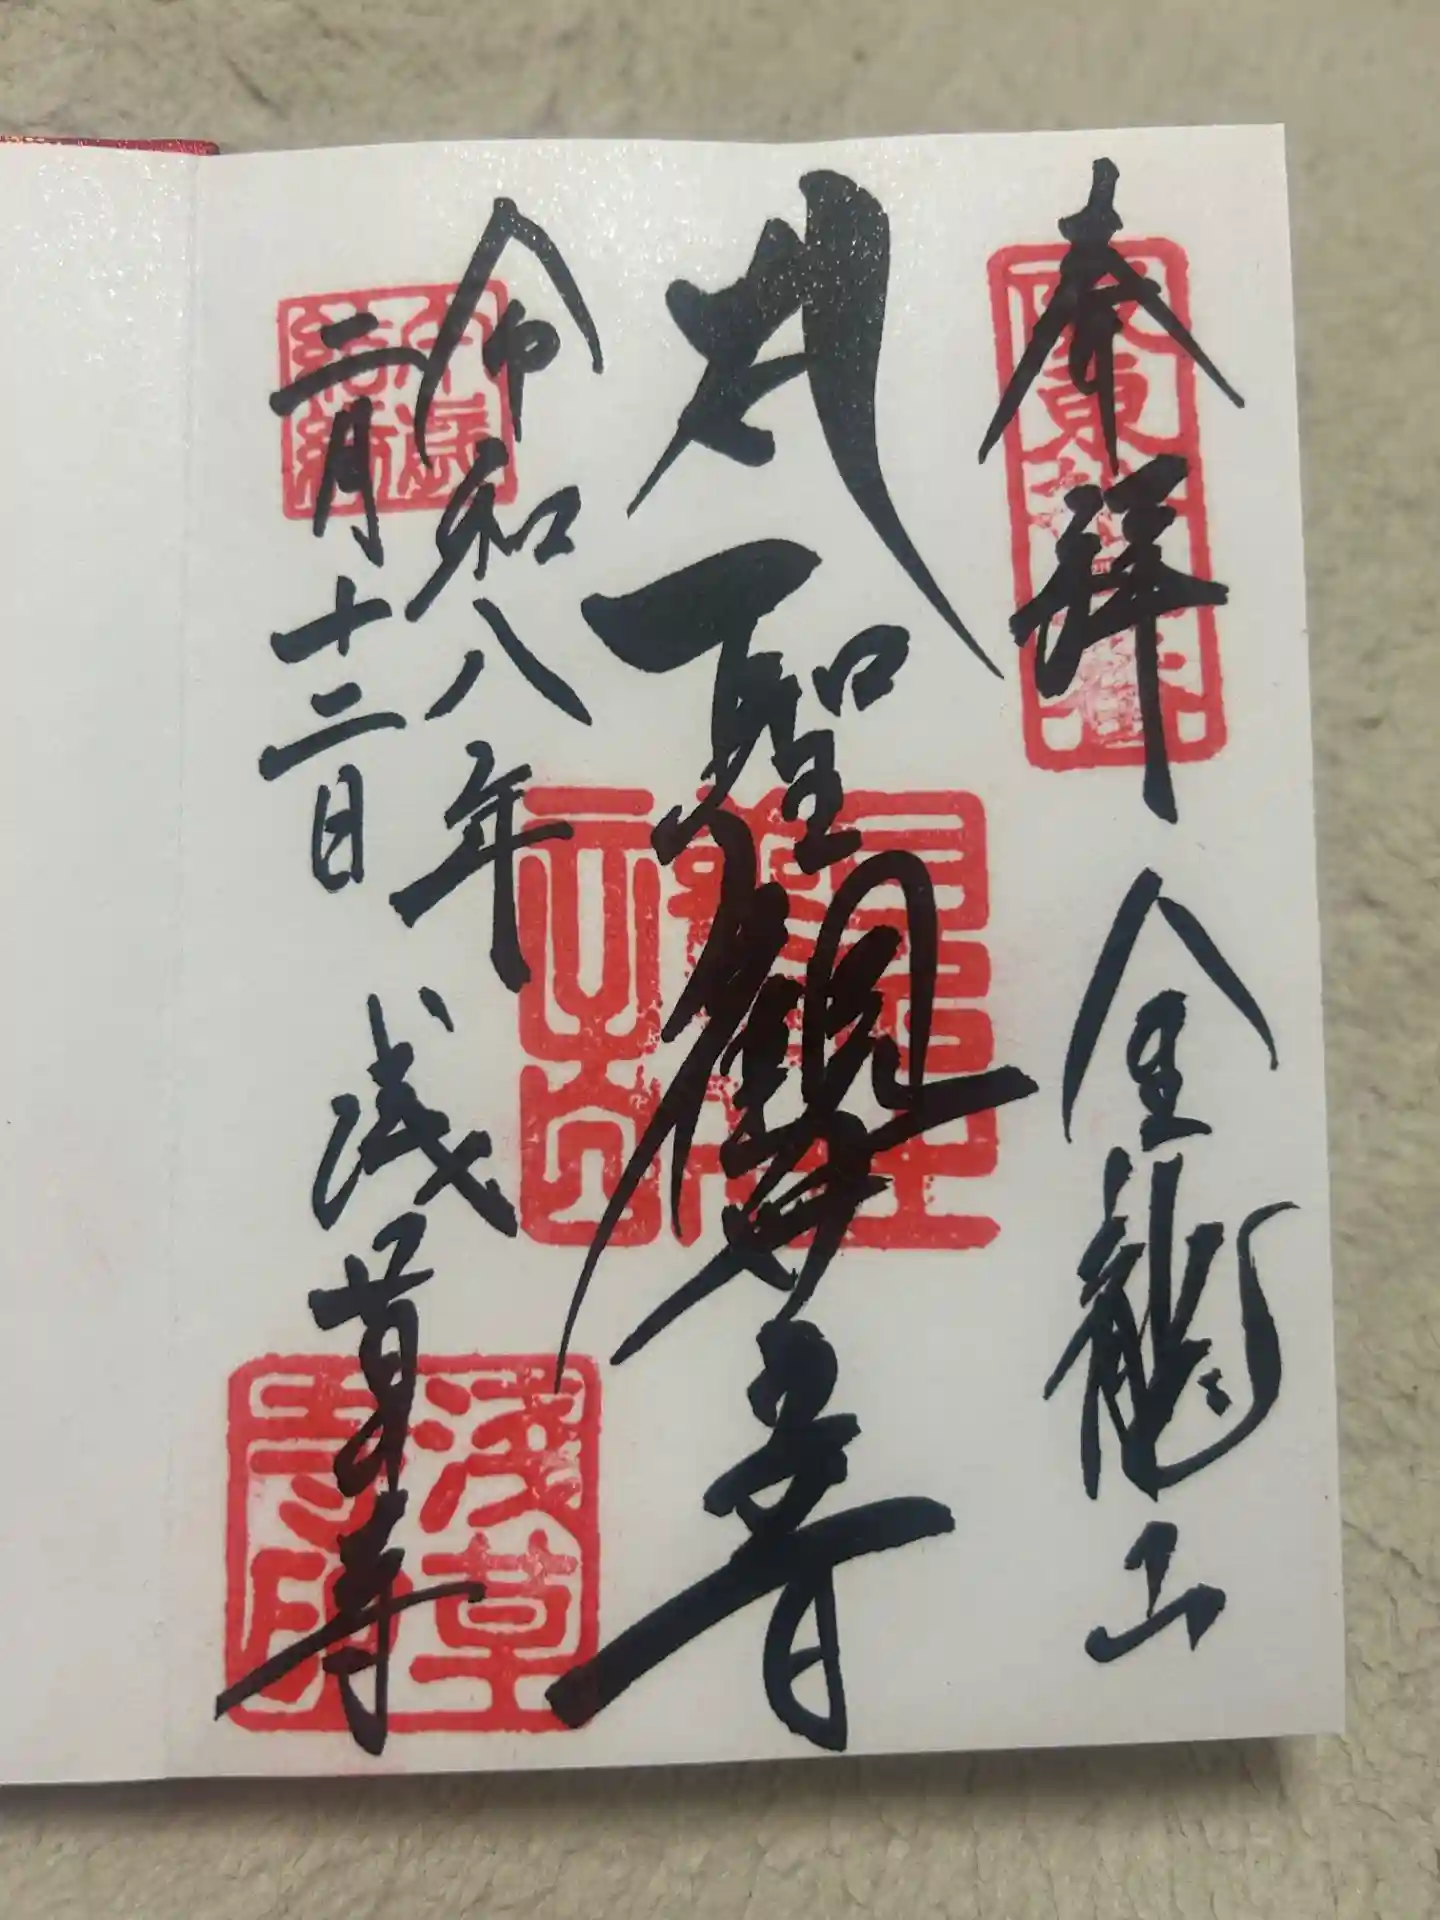 奉拝 金龍山
聖観世音
令和八年 浅草寺
二月十二日
浅草
寺印